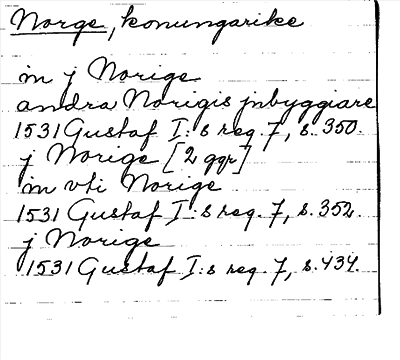 Norge, konungarike
in j Norige
andra Norigis jnbyggiare
1531 Gustaf I:s reg. 7, s. 350.
j Norige [2 ggr]
in vti Norige
1531 Gustaf I:s reg. 7, s. 352.
j Norige
1531 Gustaf I:s reg. 7, s. 434.